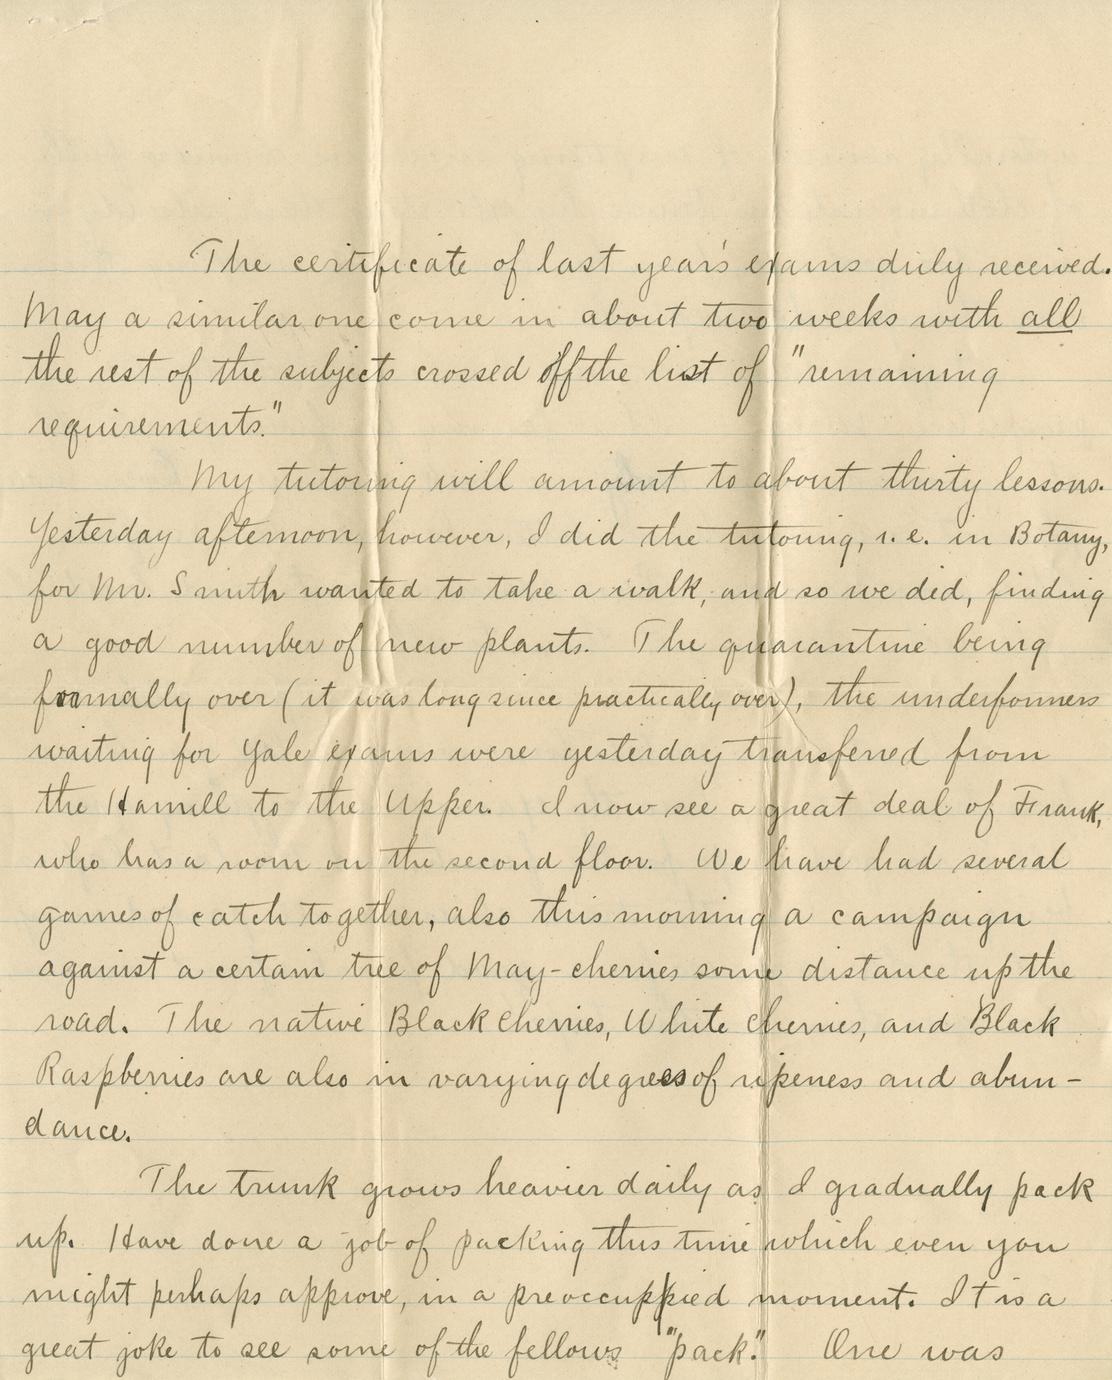 The certificate of last year's exams duly received.
May a similar one come in about two weeks with all
the rest of the subjects crossed off the list of "remaining
requirements."
My tutoring will amount to about thirty lessons.
Yesterday afternoon, however, I did the tutoring, i.e. in Botany,
for Mr. Smith wanted to take a walk, and so we did, finding
a good number of new plants. The quarantine being
formally over (it was long since practically over), the underformers
waiting for Yale exams were yesterday transferred from
the Hamill to the Upper. I now see a great deal of Frank,
who has a room on the second floor. We have had several
games of catch together, also this morning a campaign
against a certain tree of May-cherries some distance up the
road. The native Black cherries, White cherries, and Black
Raspberries are also in varying degrees of ripeness and abun-
dance.
The trunk grows heavier daily as I gradually pack
up. Have done a job of packing this time which even you
might perhaps approve, in a preoccuppied moment. It is a
great joke to see some of the fellows "pack." One was